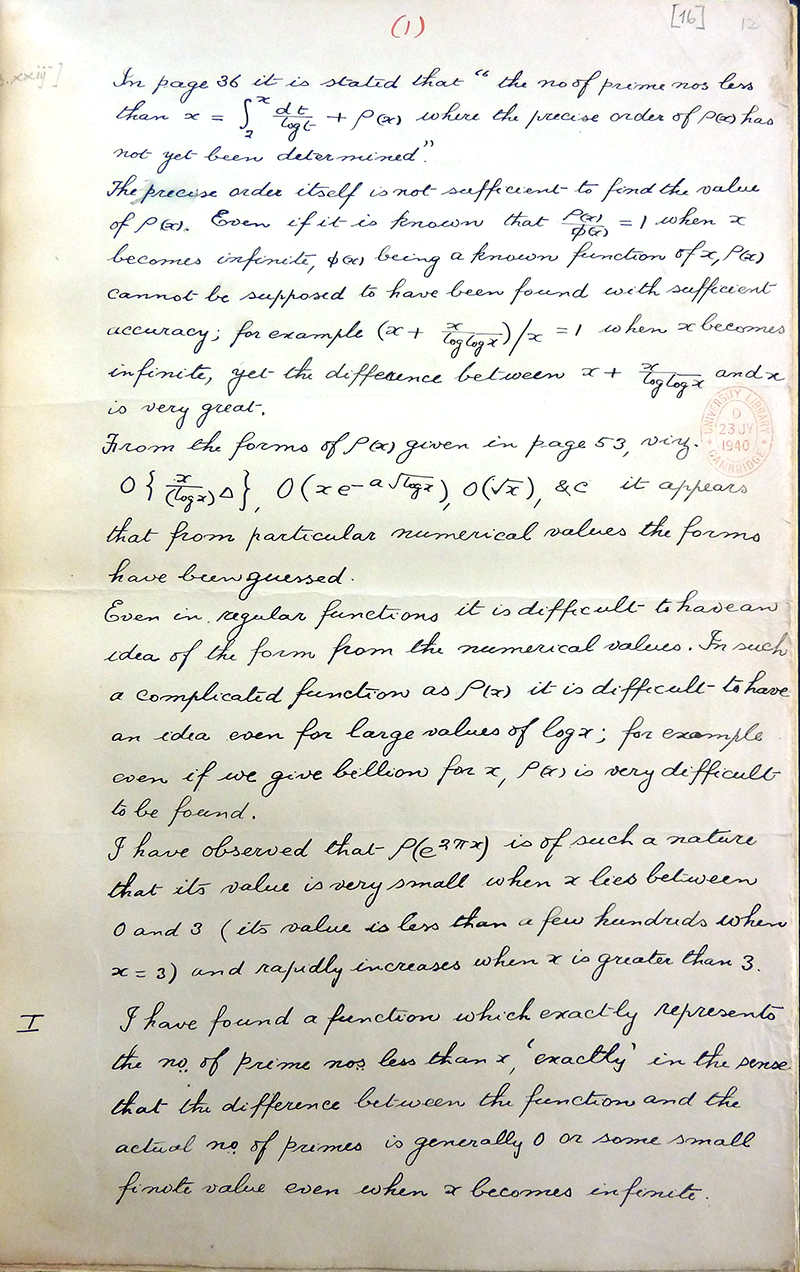 (1)
[16] 12
. xxiij]
In page 36 it is stated that “the no of prime nos less
than x = ∫₂ˣ dt/log t + ρ(x) where the precise order of ρ(x) has
not yet been determined.”
The precise order itself is not sufficient to find the value
of ρ(x). Even if it is known that ρ(x)/φ(x) = 1 when x
becomes infinite, φ(x) being a known function of x, ρ(x)
cannot be supposed to have been found with sufficient
accuracy; for example (x + x/log log x)/x = 1 when x becomes
infinite, yet the difference between x + x/log log x and x
is very great.
From the forms of ρ(x) given in page 53, viz.
O{x/(log x)^Δ}, O(x e^{-a√log x}), O(√x), &c it appears
that from particular numerical values the forms
have been guessed.
Even in regular functions it is difficult to have an
idea of the form from the numerical values. In such
a complicated function as ρ(x) it is difficult to have
an idea even for large values of log x; for example
even if we give billion for x, ρ(x) is very difficult
to be found.
I have observed that ρ(e^{2πx}) is of such a nature
that its value is very small when x lies between
0 and 3 (its value is less than a few hundreds when
x = 3) and rapidly increases when x is greater than 3.
I
I have found a function which exactly represents
the no. of prime nos. less than x, ‘exactly’ in the sense
that the difference between the function and the
actual no. of primes is generally 0 or some small
finite value even when x becomes infinite.
UNIVERSITY LIBRARY
D
23 JY
1940
CAMBRIDGE